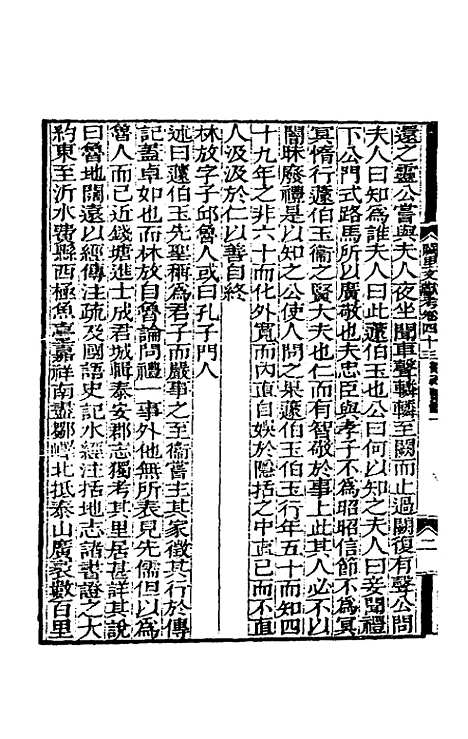 還之靈公嘗與夫人夜坐聞車聲轔轔至闕而止過闕復有聲公問
夫人曰知為誰夫人曰此蘧伯玉也公曰何以知之夫人曰妾聞禮
下公門式路馬所以廣敬也夫忠臣與孝子不為昭昭信節不為冥
冥惰行蘧伯玉衞之賢大夫也仁而有智敬於事上此其人必不以
闇昧廢禮是以知之公使人問之果蘧伯玉伯玉行年五十而知四
十九年之非六十而化外寬而內直自娛於隱括之中直己而不直
人汲汲於仁以善自終
林放字子邱魯人或曰孔子門人
述曰蘧伯玉先聖稱為君子而嚴事之至衞嘗主其家徵其行於傳
記蓋卓如也而林放自魯論問禮一事外他無所表見先儒但以為
魯人而已近錢塘進士成君城輯泰安郡志獨考其里居甚詳其說
曰魯地闊遠以經傳注疏及國語史記水經注括地志諸書證之大
約東至沂水費縣西極魚臺嘉祥南盡鄒嶧北抵泰山廣袤數百里
闕里文獻考卷四十三
二